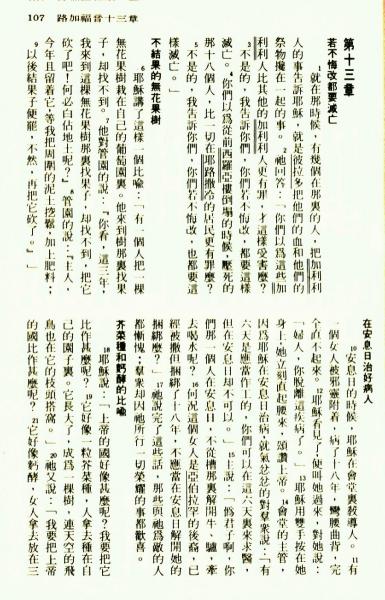 107 路加福音十三章
第十三章
若不悔改都要滅亡
1 就在那時候，有幾個在那裏的人，把加利利
人的事告訴耶穌，就是彼拉多把他們的血和他們的
祭物攙在一起的事。2 祂回答：「你們以為這些加
利利人比其他的加利利人更有罪，才這樣受害麼？
3 不是的，我告訴你們，你們若不悔改，都要這樣
滅亡。4 你們以為從前西羅亞樓倒塌的時候，壓死的
那十八個人，比一切在耶路撒冷的居民更有罪麼？
5 不是的，我告訴你們，你們若不悔改，也都要這
樣滅亡。」
不結果的無花果樹
6 耶穌講了這樣一個比喻：「有一個人把一棵
無花果樹栽在自己的葡萄園裏。他來到樹那裏找果
子，却找不到。7 他對管園的說：『你看，這三年，
我來到這棵無花果樹那裏找果子，却找不到，把它
砍了吧！何必白佔地土呢？』8 管園的說：『主人，
今年且留着它，等我把周圍的泥土挖鬆，加上肥料；
9 以後結果子便罷，不然，再把它砍了。』」
在安息日治好病人
10 安息日的時候，耶穌在會堂裏教導人。11 有
一個女人被邪靈附着，病了十八年，彎腰曲背，完
全直不起來。12 耶穌看見了，便叫她過來，對她說：
「婦人，你脫離這疾病了。」13 耶穌用雙手按在她
身上，她立刻直起腰來，頌讚上帝。14 會堂的主管，
因為耶穌在安息日治病，就氣忿忿的對羣眾說：「有
六天是應當作工的，你們可以在這六天裏來求醫，
但在安息日却不可以。」15 主說：「偽君子啊，你
們那一個人在安息日，不從槽那裏解開牛、驢，牽
去喝水呢？16 何況這個女人是亞伯拉罕的後裔，已
經被撒但捆綁了十八年，不應當在安息日解開她的
捆綁麼？」17 祂說完了這些話，那些與祂為敵的人
都慚愧，羣眾却因祂所行一切榮耀的事都歡喜。
芥菜種和麪酵的比喻
18 耶穌說：「上帝的國好像甚麼呢？我要把它
比作甚麼呢？19 它好像一粒芥菜種，人拿去種在自
己的園子裏。它長大了，成為一棵樹，連天空的飛
鳥也在它的枝頭搭窩。」20 祂又說：「我要把上帝
的國比作甚麼呢？21 它好像麪酵，女人拿去放在三